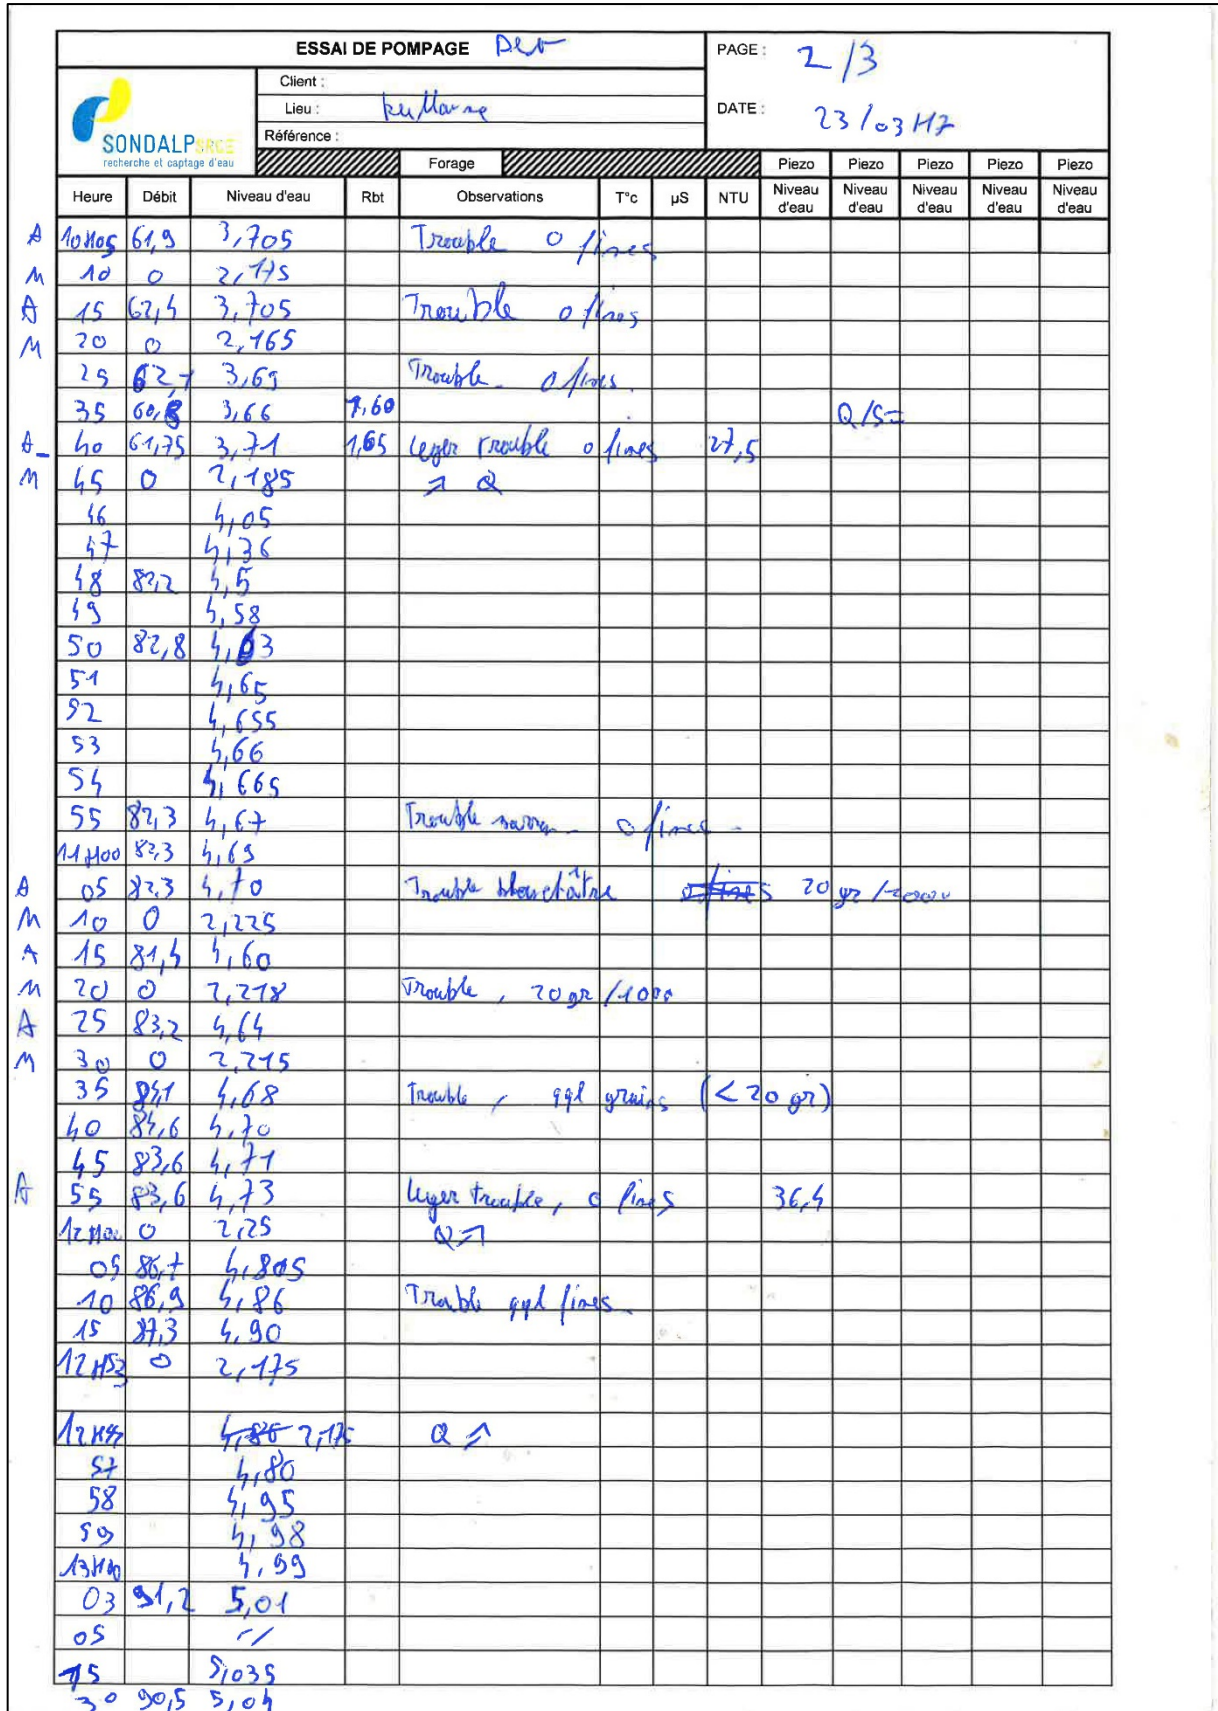 ESSAI DE POMPAGE Dev PAGE : 2/3
Client :
Lieu : DATE : 23/03/17
Référence :
SONDALP SRCE
recherche et captage d'eau
Forage Piezo Piezo Piezo Piezo Piezo
Heure Débit Niveau d'eau Rbt Observations T°c µS NTU Niveau d'eau Niveau d'eau Niveau d'eau Niveau d'eau Niveau d'eau
A 10H05 61,9 3,705 Trouble 0 fines
M 10 0 2,175
A 15 62,4 3,705 Trouble 0 fines
M 20 0 2,165
25 62,1 3,69 Trouble 0 fines.
35 60,8 3,66 1,60 Q/S=
A 40 61,75 3,71 1,65 leger trouble 0 fines 27,5
M 45 0 2,185 ↗ Q
46 4,05
47 4,36
48 82,2 4,5
49 4,58
50 82,8 4,63
51 4,65
52 4,655
53 4,66
54 4,665
55 82,3 4,67 Trouble 0 fines
11H00 82,3 4,69
A 05 82,3 4,70 Trouble blanchâtre 0 fines 20 gr /
M 10 0 2,225
A 15 81,4 4,60
M 20 0 2,218 Trouble, 20 gr /1000
A 25 83,2 4,64
M 30 0 2,215
35 84,1 4,68 Trouble, qql grains (<20 gr)
40 84,6 4,70
45 83,6 4,71
A 55 83,6 4,73 leger trouble, 0 fines 36,4
12H00 0 2,25 Q↗
05 86,7 4,805
10 86,9 4,86 Trouble qql fines
15 87,3 4,90
12H53 0 2,175
4,86 2,175 Q ↗
57 4,80
58 4,95
59 4,98
13H00 4,99
03 91,2 5,01
05 //
15 5,035
30 90,5 5,04